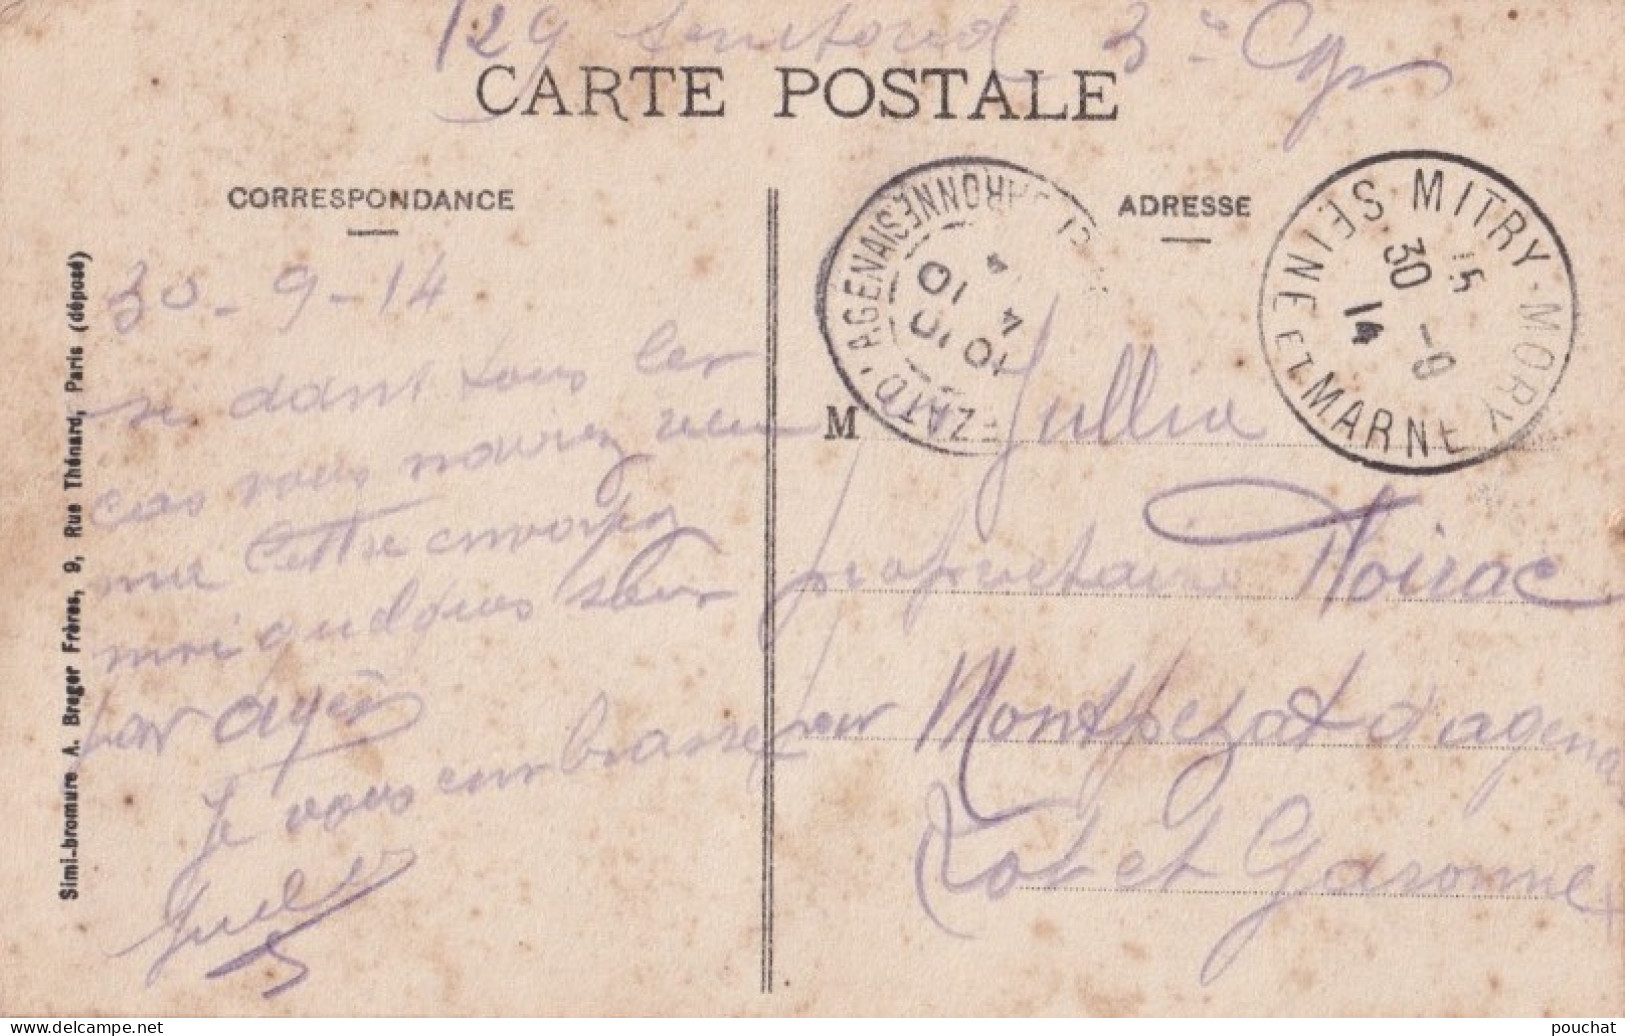 129 territorial 3e Cgn
CARTE POSTALE
CORRESPONDANCE
ADRESSE
30-9-14
si dans tous les
cas vous n'aviez reçu
ma lettre envoyez
moi quelques sous
par
Je vous embrasse
Jules
M Jullia
propriétaire Noirac
par Montpezat d'agenais
Lot et Garonne
MITRY-MORY
SEINE ET MARNE
15
30 -9
14
MONTPEZAT D'AGENAIS
10 10
14
Simi-bromure A. Breger Frères, 9, Rue Thénard, Paris (déposé)
pouchat